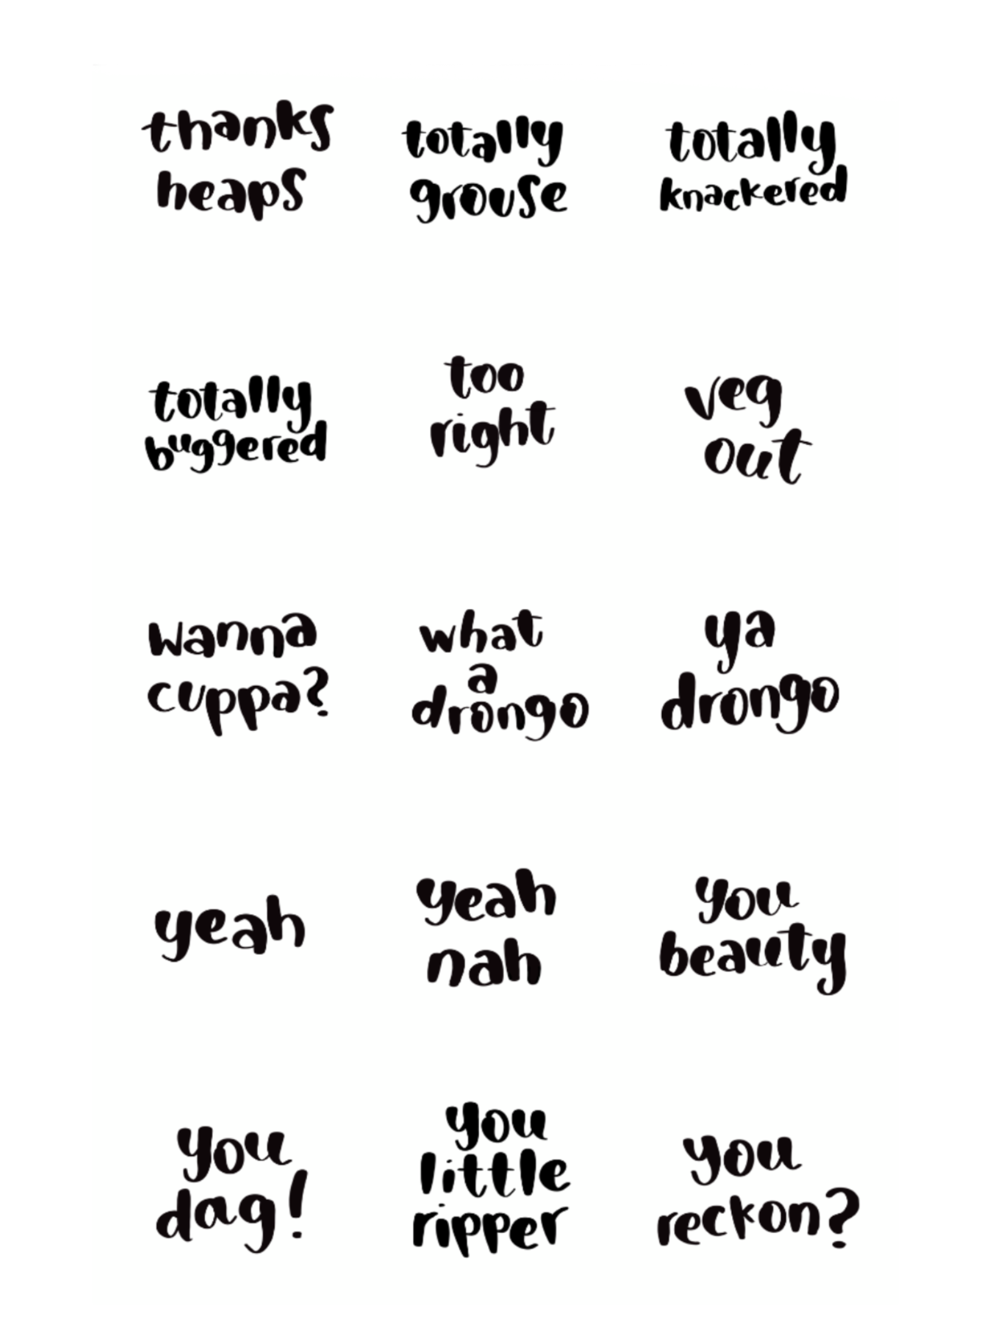 thanks
heaps
totally
grouse
totally
knackered
totally
buggered
too
right
veg
out
wanna
cuppa?
what
a
drongo
ya
drongo
yeah
yeah
nah
you
beauty
you
dag!
you
little
ripper
you
reckon?